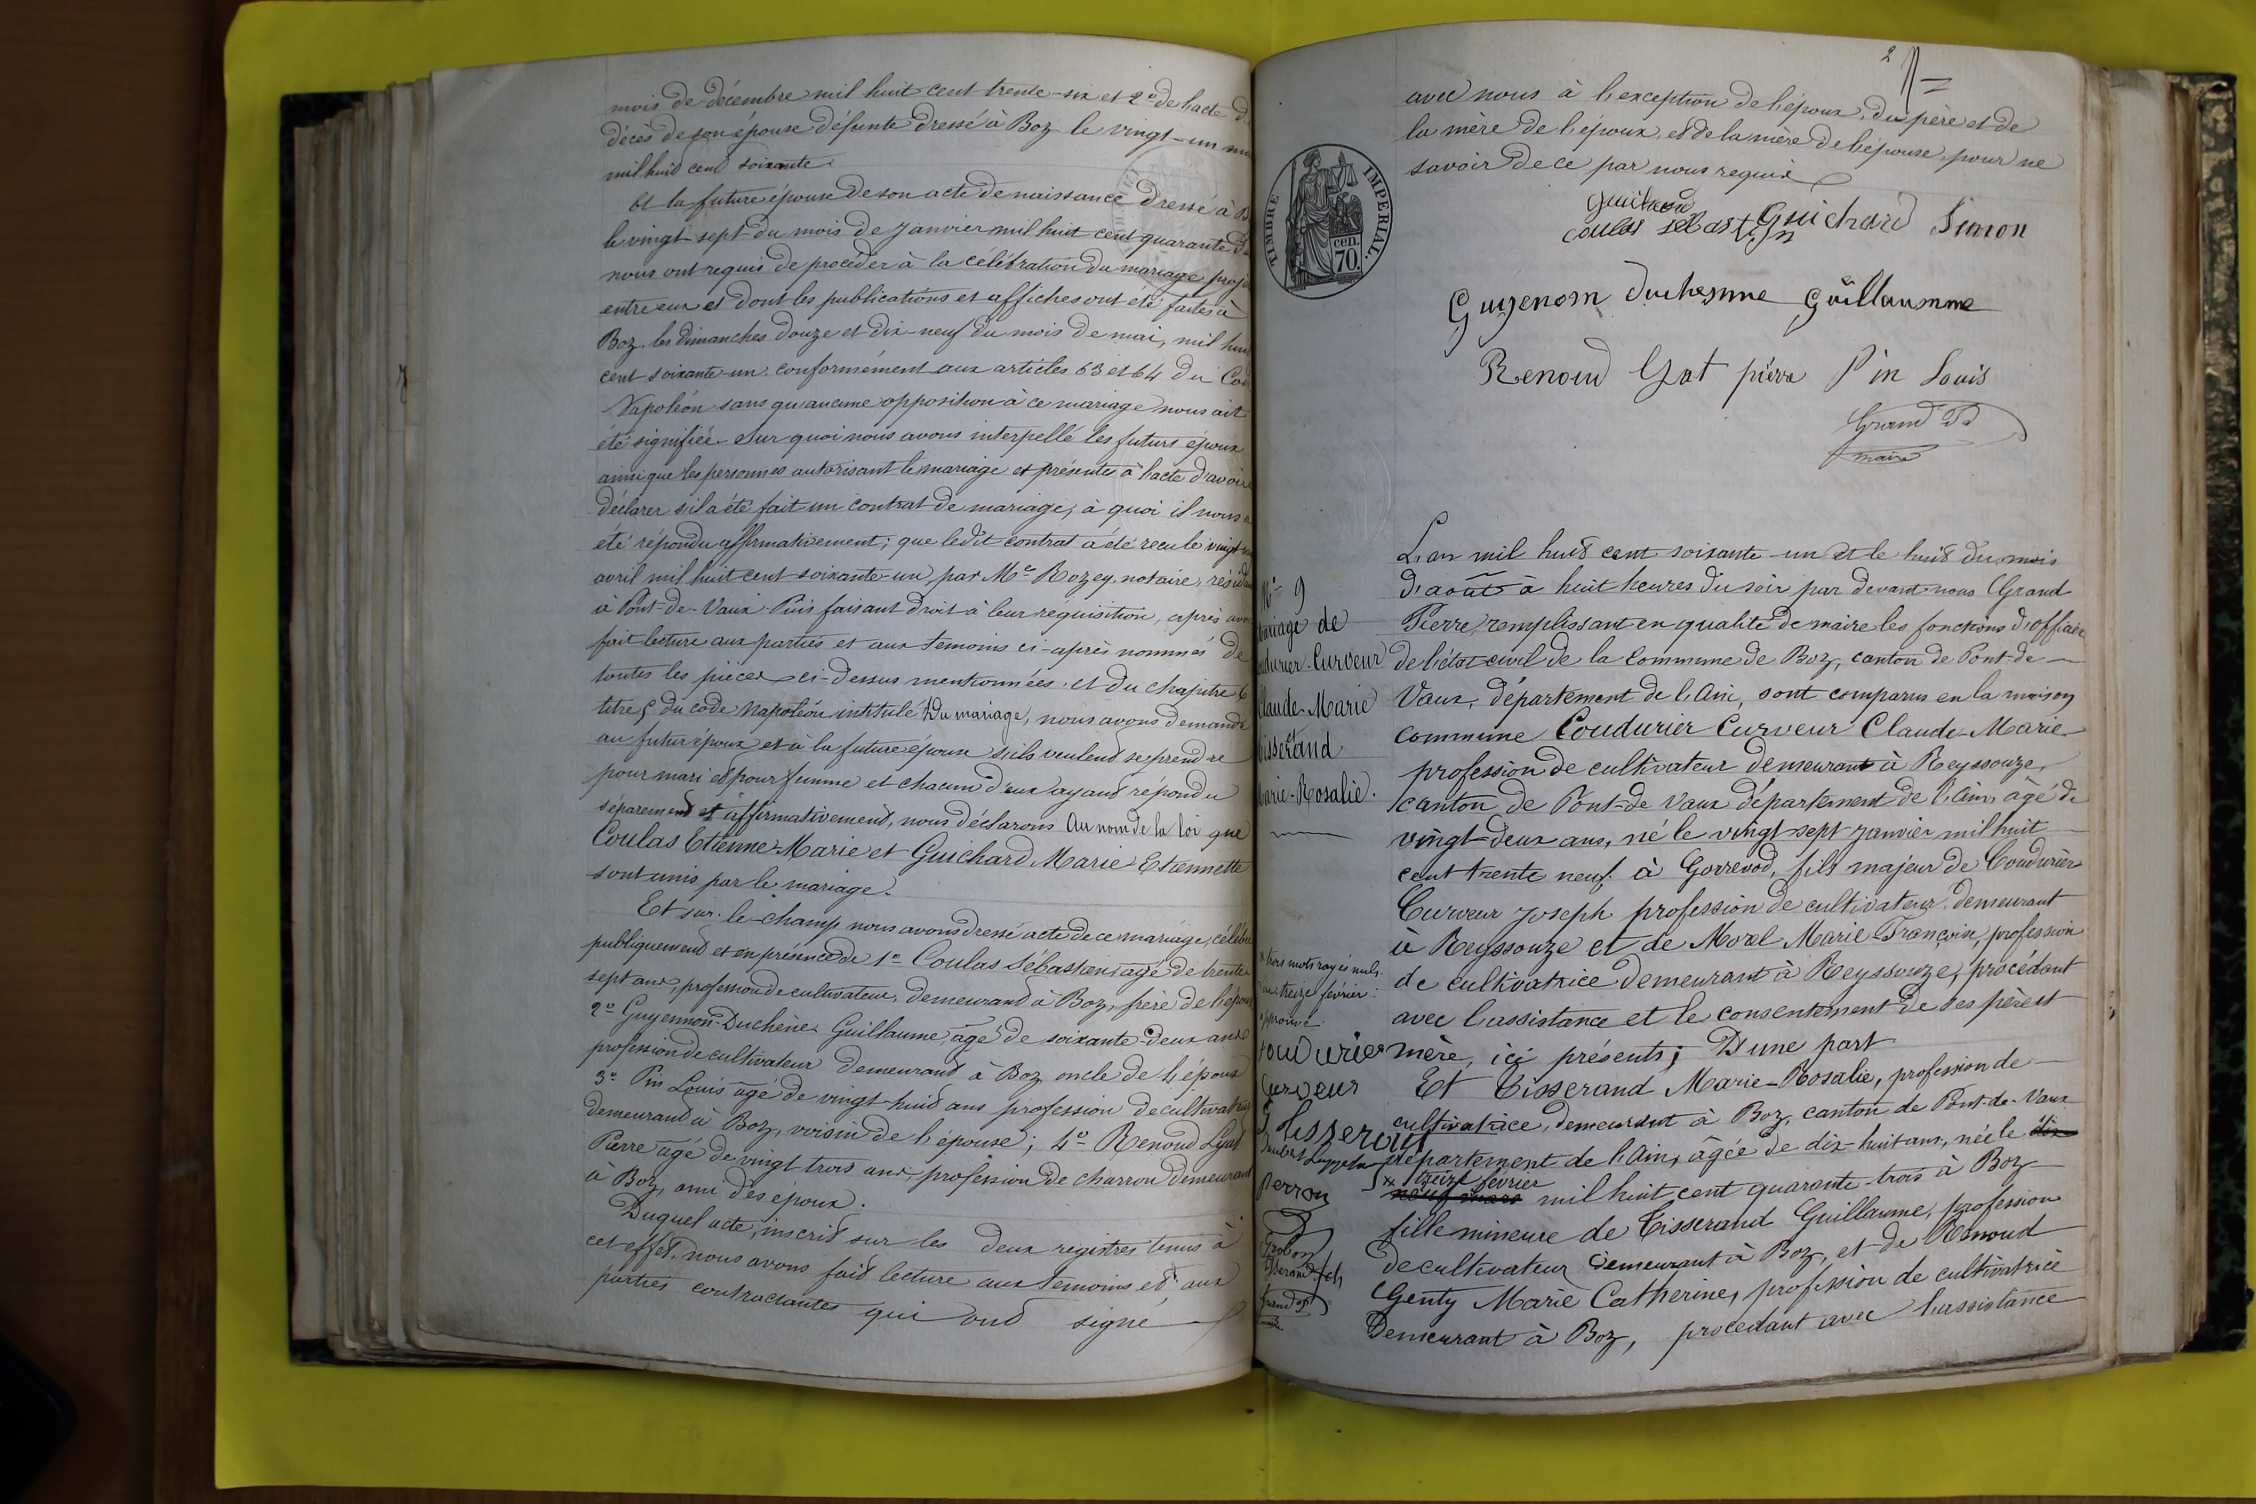 mois de décembre mil huit cent trente-six et 2° de l'acte d
décès de son épouse défunte dressé à Boz le vingt-un
mil huit cent soixante.
Et la future épouse de son acte de naissance dressé à B
le vingt-sept du mois de Janvier mil huit cent quarante
nous ont requis de procéder à la célébration du mariage proje
entre eux et dont les publications et affiches ont été faites à
Boz les dimanches douze et dix-neuf du mois de mai, mil hui
cent soixante-un conformément aux articles 63 et 64 du Cod
Napoléon sans qu'aucune opposition à ce mariage nous ait
été signifiée. Sur quoi nous avons interpellé les futurs époux
ainsi que les personnes autorisant le mariage et présentes à l'acte d'avoir
déclarer s'il a été fait un contrat de mariage; à quoi il nous a
été répondu affirmativement; que ledit contrat a été recu le vingt
avril mil huit cent soixante-un par Me Rozey, notaire, résid
à Pont-de-Vaux. Puis faisant droit à leur réquisition, après avo
fait lecture aux parties et aux témoins ci-après nommés de
toutes les pièces ci-dessus mentionnées et du chapitre 6
titre 5 du code Napoléon intitulé Du mariage, nous avons demandé
au futur époux et à la future épouse s'ils veulent se prendre
pour mari et pour femme et chacun d'eux ayant répondu
séparement et affirmativement, nous déclarons Au nom de la loi que
Coulas Etienne-Marie et Guichard Marie Etiennette
sont unis par le mariage.
Et sur-le-champ nous avons dressé acte de ce mariage, célébré
publiquement et en présence de 1° Coulas Sébastien, agé de trente
sept ans, profession de cultivateur, demeurant à Boz, frère de l'époux
2° Guyennon-Duchêne Guillaume, âgé de soixante-deux ans
profession de cultivateur demeurant à Boz oncle de l'époux
3° Pin Louis âgé de vingt-huit ans profession de cultivateur
demeurant à Boz, voisin de l'épouse; 4° Renoud Lyat
Pierre âgé de vingt-trois ans, profession de charron demeurant
à Boz, ami des époux.
Duquel acte, inscrit sur les deux registres tenus à
cet effet, nous avons fait lecture aux témoins et aux
parties contractantes qui ont signé
2
avec nous à l'exception de l'époux, du père et de
la mère de l'époux, et de la mère de l'épouse pour ne
savoir de ce par nous requis
TIMBRE IMPERIAL.
70 cen.
Guichard Simon
coulas sebastien
Guyenom duchesnne Guillaumme
Renoud Lyat pierre Pin Louis
Grand P
maire
N° 9
mariage de
oudurier-Curveur
Claude-Marie
et
Tisserand
Marie-Rosalie.
L'an mil huit cent soixante-un et le huit du mois
d'août à huit heures du soir par devant nous Grand
Pierre, remplissant en qualité de maire les fonctions d'officier
de l'état civil de la Commune de Boz, canton de Pont-de-
Vaux, département de l'Ain, sont comparus en la maison
commune Coudurier Curveur Claude-Marie
profession de cultivateur demeurant à Reyssouze,
canton de Pont-de-Vaux département de l'Ain, âgé de
vingt-deux ans, né le vingt-sept Janvier mil huit
cent trente neuf à Gorrevod, fils majeur de Coudurier
Curveur Joseph profession de cultivateur demeurant
à Reyssouze et de Morel Marie-Françoise, profession
de cultivatrice demeurant à Reyssouze, procédant
avec l'assistance et le consentement de ses père et
mère, ici présents; D'une part
Et Tisserand Marie-Rosalie, profession de
cultivatrice, demeurant à Boz, canton de Pont-de-Vaux
département de l'Ain, âgée de dix-huit ans, née le dix
neuf mars x treize février mil huit cent quarante-trois à Boz
fille mineure de Tisserand Guillaume, profession
de cultivateur demeurant à Boz, et de Renoud
Genty Marie Catherine, profession de cultivatrice
demeurant à Boz, procédant avec l'assistance
x trois mots rayés nuls.
treize février.
approuvé.
Coudurier
Curveur
Tisserand
Perron
Grand P